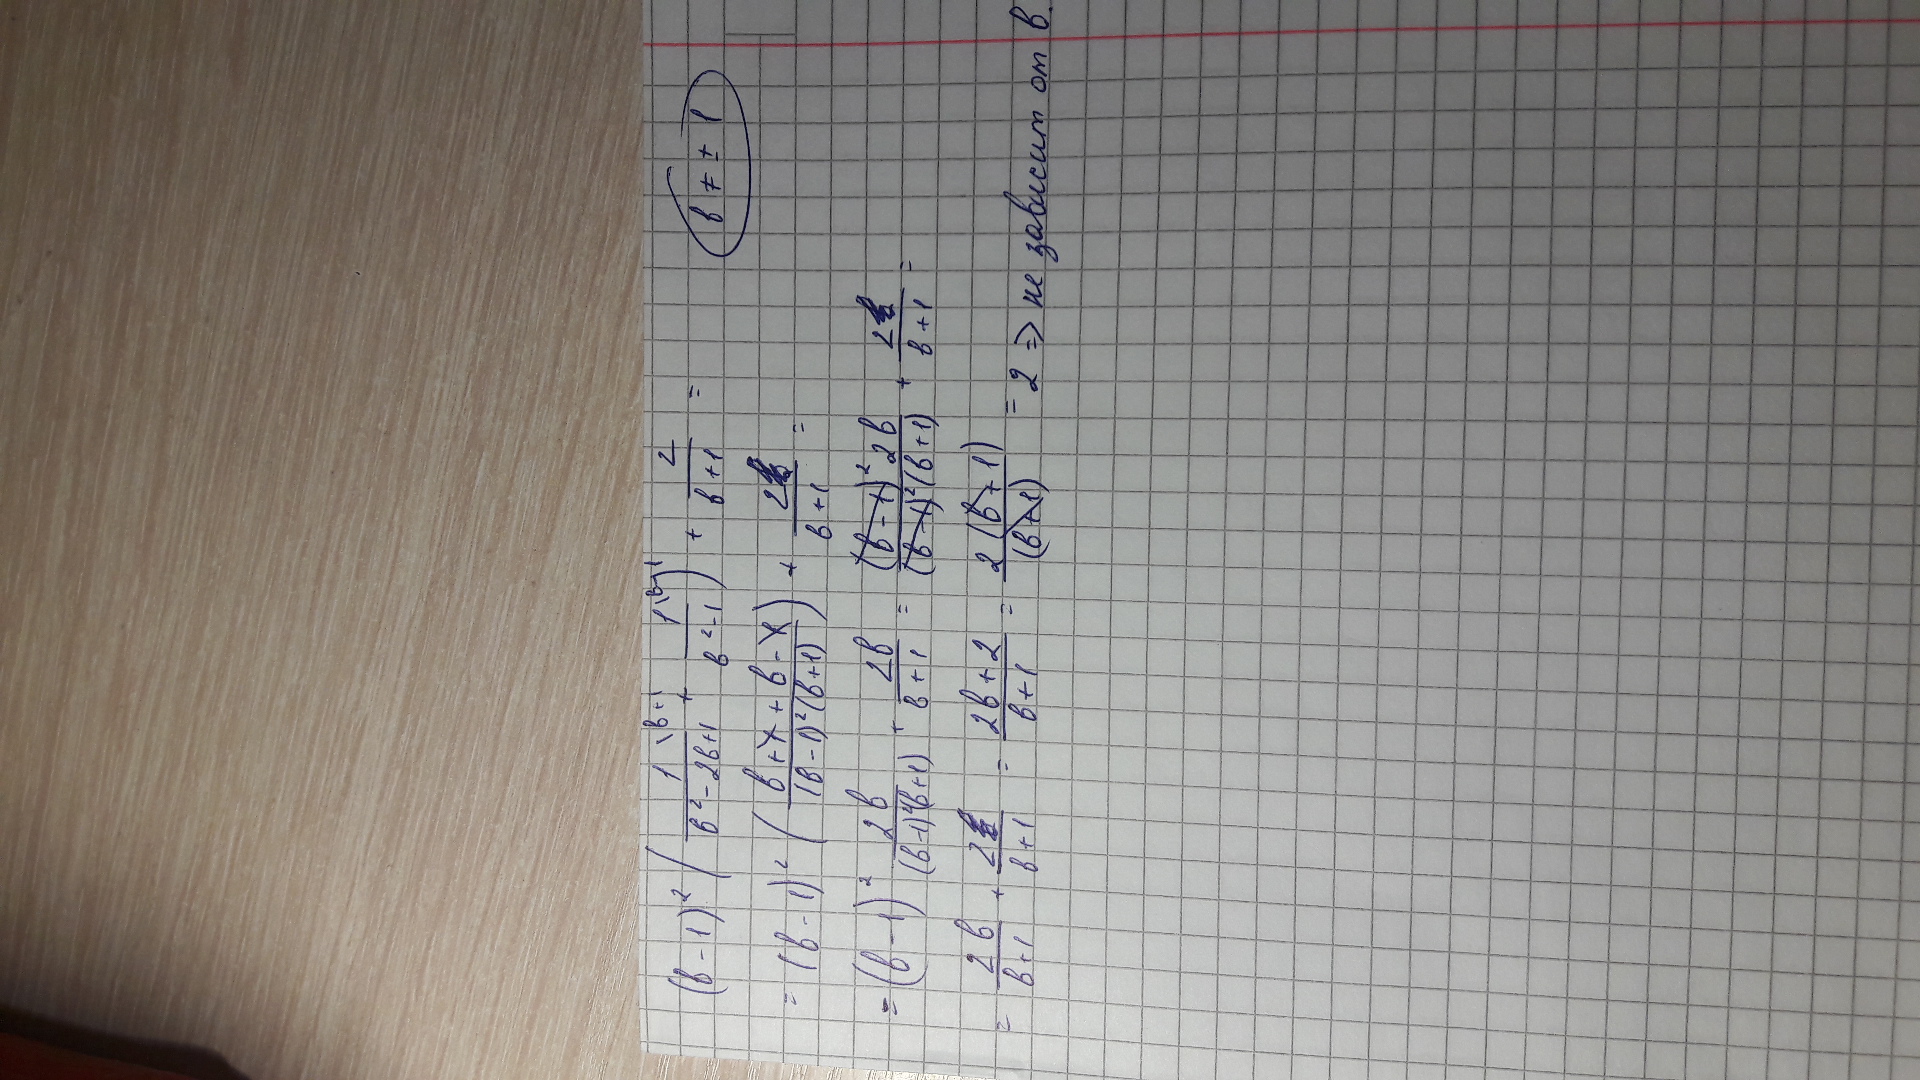 (в-1)² (1\в+1/(в²-2в+1) + 1\в-1/(в²-1)) + 2/(в+1) = в ≠ ± 1
= (в-1)² ((в+1+в-1)/((в-1)²(в+1))) + 2/(в+1) =
= (в-1)² 2в/((в-1)²(в+1)) + 2в/(в+1) = (в-1)² 2в/((в-1)²(в+1)) + 2/(в+1) =
= 2в/(в+1) + 2/(в+1) = (2в+2)/(в+1) = 2(в+1)/(в+1) = 2 => не зависит от в.